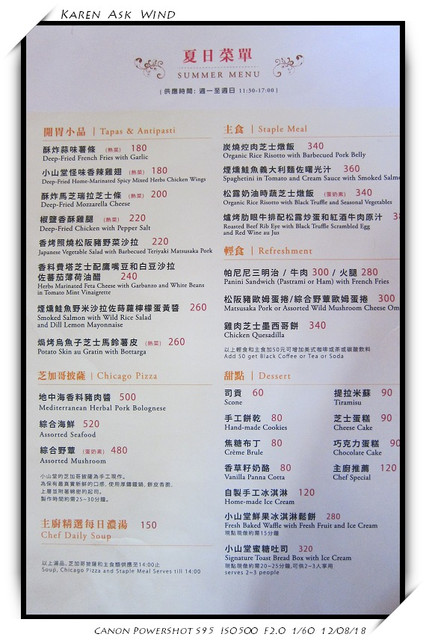 KAREN ASK WIND
夏日菜單
SUMMER MENU
| 供應時間: 週一至週日 11:30-17:00 |
開胃小品 | Tapas & Antipasti
酥炸蒜味薯條 (熱菜) 180
Deep-Fried French Fries with Garlic
小山堂怪味香辣雞翅 (熱菜) 180
Deep-Fried Home-Marinated Spicy Mixed Herbs Chicken Wings
酥炸馬芝瑞拉芝士條 (熱菜) 200
Deep-Fried Mozzarella Cheese
椒鹽香酥雞腿 (熱菜) 220
Deep-Fried Chicken with Pepper Salt
香烤照燒松阪豬野菜沙拉 220
Japanese Vegetable Salad with Barbecued Teriyaki Matsuzaka Pork
香料費塔芝士配鷹嘴豆和白豆沙拉
佐蕃茄薄荷油醋 240
Herbs Marinated Feta Cheese with Garbanzo and White Beans
in Tomato Mint Vinaigrette
煙燻鮭魚野米沙拉佐蒔蘿檸檬蛋黃醬 260
Smoked Salmon with Wild Rice Salad
and Dill Lemon Mayonnaise
焗烤烏魚子芝士馬鈴薯皮 (熱菜) 260
Potato Skin au Gratin with Bottarga
芝加哥披薩 | Chicago Pizza
地中海香料豬肉醬 500
Mediterranean Herbal Pork Bolognese
綜合海鮮 520
Assorted Seafood
綜合野蕈 (蛋奶素) 480
Assorted Mushroom
小山堂的芝加哥披薩為手工現作。
為保有最真實新鮮的口感, 使用厚實鐵鍋, 餅皮香脆,
上層並附著綿密的起司。
製作時間約需25~30分鐘。
主廚精選每日濃湯 150
Chef Daily Soup
以上湯品, 芝加哥披薩和主食類供應至14:00止
Soup, Chicago Pizza and Staple Meal Serves till 14:00
主食 | Staple Meal
炭燒焢肉芝士燉飯 340
Organic Rice Risotto with Barbecued Pork Belly
煙燻鮭魚義大利麵佐曙光汁 360
Spaghetini in Tomato and Cream Sauce with Smoked Salm
松露奶油時蔬芝士燉飯 (蛋奶素) 340
Organic Rice Risotto with Black Truffle and Seasonal Vegetables
爐烤肋眼牛排配松露炒蛋和紅酒牛肉原汁
Roasted Beef Rib Eye with Black Truffle Scrambled Egg
and Red Wine au Jus
輕食 | Refreshment
帕尼尼三明治 / 牛肉 300 / 火腿 280
Panini Sandwich (Pastrami or Ham) with French Fries
松阪豬歐姆蛋捲/綜合野蕈歐姆蛋捲 300
Matsusaka Pork or Assorted Wild Mushroom Cheese Om
雞肉芝士墨西哥餅 340
Chicken Quesadilla
以上輕食和主食加50元可增加美式咖啡或茶或碳酸飲料
Add 50 get Black Coffee or Tea or Soda
甜點 | Dessert
司貢 60
Scone
提拉米蘇 90
Tiramisu
手工餅乾 80
Hand-made Cookies
芝士蛋糕 90
Cheese Cake
焦糖布丁 80
Crème Brule
巧克力蛋糕 90
Chocolate Cake
香草籽奶酪 80
Vanilla Panna Cotta
主廚推薦 120
Chef Special
自製手工冰淇淋 120
Home-made Ice Cream
小山堂鮮果冰淇淋鬆餅 280
Fresh Baked Waffle with Fresh Fruit and Ice Cream
現點現做約需15分鐘
小山堂蜜糖吐司 320
Signature Toast Bread Box with Ice Cream
現點現做約需20~25分鐘,可供2~3人享用
serves 2~3 people
CANON POWERSHOT S95 ISO500 F2.0 1/60 12/08/18